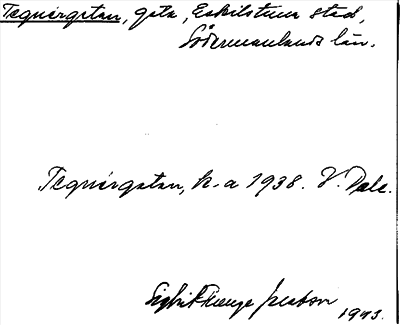 Tegnérgatan, gata, Eskilstuna stad,
Södermanlands län.
Tegnérgatan, k.a 1938. V. Dale.
1943.